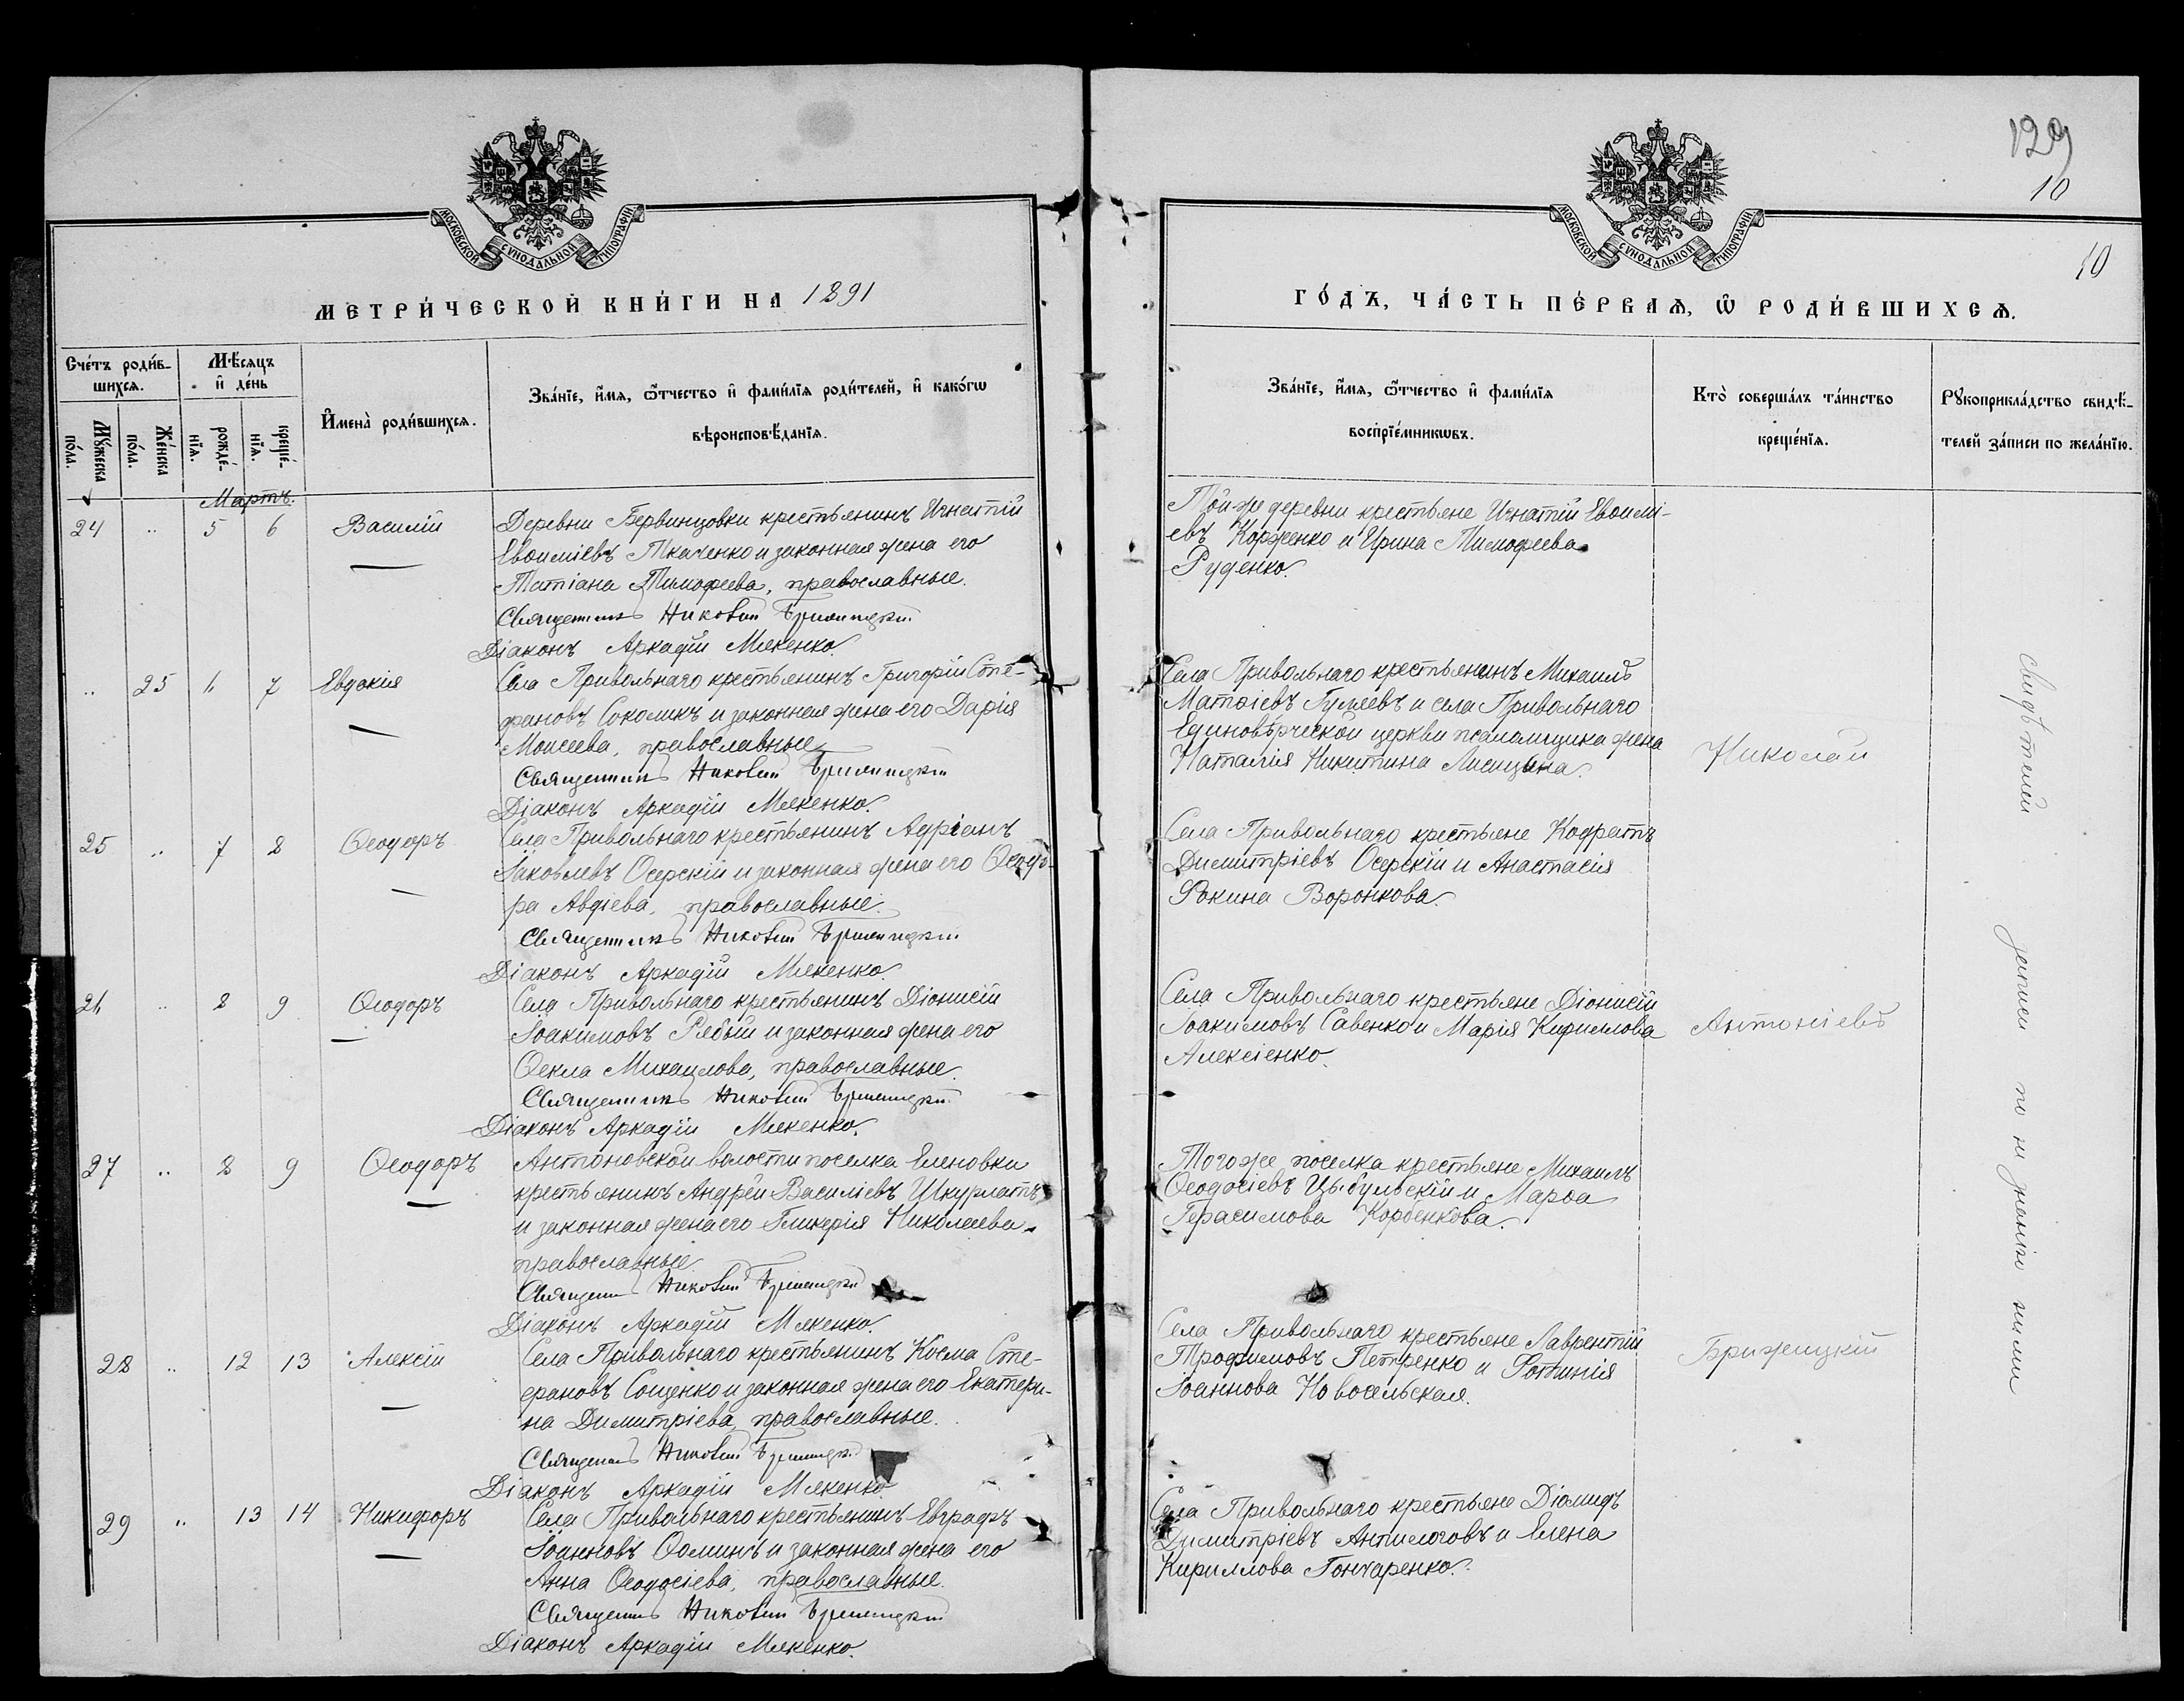 МОСКОВСКОЙ СѴНОДАЛЬНОЙ ТИПОГРАФІИ
МЕТРИ́ЧЕСКОЙ КНИ́ГИ НА 1891
Сче́тъ роди́в-
шихсѧ.
Мѣ́сѧцъ
и҆ де́нь
Мꙋ́жеска
по́ла.
Же́нска
по́ла.
рожде́-
нїѧ.
креще́-
нїѧ.
И҆мена̀ роди́вшихсѧ.
Зва́нїе, и҆́мѧ, ѻ҆́тчество и҆ фами́лїѧ роди́телей, и҆ како́гѡ
вѣроисповѣ́данїѧ.
Мартъ.
24 .. 5 6 Василій
Деревни Бервинцовки крестьянинъ Игнатій
Евѳиміевъ Ткаченко и законная жена его
Татіана Тимофеева, православные.
Священникъ
Діаконъ Аркадій Мякенко.
.. 25 6 7 Евдокія
Села Привольнаго крестьянинъ Григорій Сте-
фановъ Соколикъ и законная жена его Дарія
Моисеева, православные
Священникъ
Діаконъ Аркадій Мякенко.
25 .. 7 8 Ѳеодоръ
Села Привольнаго крестьянинъ Адріанъ
Іаковлевъ Осерскій и законная жена его Ѳеодо-
ра Авдіева, православные.
Священникъ
Діаконъ Аркадій Мякенко.
26 .. 8 9 Ѳеодоръ
Села Привольнаго крестьянинъ Діонисій
Іоакимовъ Рябый и законная жена его
Ѳекла Михаилова, православные.
Священникъ
Діаконъ Аркадій Мякенко.
27 .. 8 9 Ѳеодоръ
Антоновской волости поселка Еленовки
крестьянинъ Андрей Василіевъ Шкурлатъ
и законная жена его Гликерія Николаева
православные.
Священникъ
Діаконъ Аркадій Мякенко.
28 .. 12 13 Алексій
Села Привольнаго крестьянинъ Косма Сте-
фановъ Сощенко и законная жена его Екатери-
на Димитріева, православные.
Священникъ
Діаконъ Аркадій Мякенко
29 .. 13 14 Никифоръ
Села Привольнаго крестьянинъ Евграфъ
Іоанновъ Ѳоминъ и законная жена его
Анна Ѳеодосіева, православные.
Священникъ
Діаконъ Аркадій Мякенко.
129
10
МОСКОВСКОЙ СѴНОДАЛЬНОЙ ТИПОГРАФІИ
10
ГО́ДЪ, ЧА́СТЬ ПЕ́РВАѦ, Ѡ҆ РОДИ́ВШИХСѦ.
Зва́нїе, и҆́мѧ, ѻ҆́тчество и҆ фами́лїѧ
воспрїе́мникѡвъ.
Кто̀ соверша́лъ та́инство
креще́нїѧ.
Рꙋкоприкла́дство свидѣ́-
телей за́писи по жела́нїю.
Той же деревни крестьяне Игнатій Евѳимі-
евъ Корженко и Ирина Тимофеева
Руденко.
Села Привольнаго крестьянинъ Михаилъ
Матѳіевъ Гулеевъ и села Привольнаго
Единовѣрческой церкви псаломщика жена
Наталія Никитина Лисицына.
Николай
Села Привольнаго крестьяне Кодратъ
Димитріевъ Осерскій и Анастасія
Фокина Воронкова.
Села Привольнаго крестьяне Діонисій
Іоакимовъ Савенко и Марія Кириллова
Алексіенко.
Антоніевъ
Того же поселка крестьяне Михаилъ
Ѳеодосіевъ Цыбульскій и Марѳа
Герасимова Корбенкова.
Села Привольнаго крестьяне Лаврентій
Трофимовъ Петренко и Фотинія
Іоаннова Новосельская.
Брижицкій
Села Привольнаго крестьяне Діомидъ
Димитріевъ Антилоговъ и Елена
Кириллова Гончаренко.
Свидѣтелей записи по не знанію